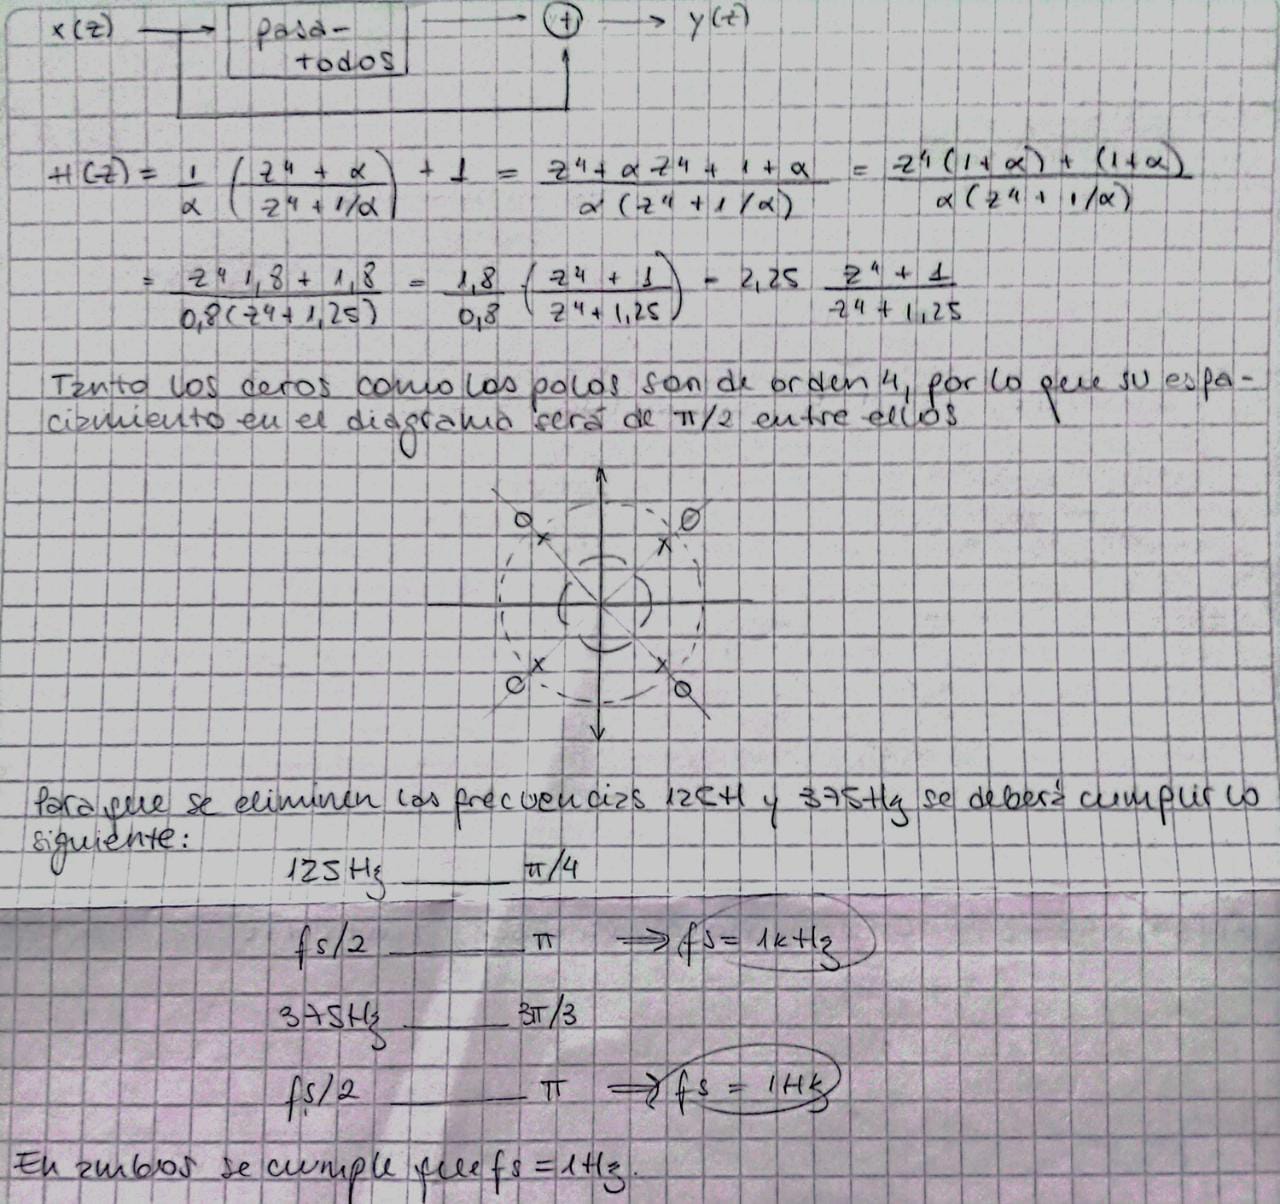 x(z) → pasa- → + → y(z)
todos
H(z) = 1/α ( (z⁴ + α) / (z⁴ + 1/α) ) + 1 = (z⁴ + α z⁴ + 1 + α) / (α (z⁴ + 1/α)) = (z⁴ (1+α) + (1+α)) / (α (z⁴ + 1/α))
= (z⁴ 1,8 + 1,8) / (0,8 (z⁴ + 1,25)) = 1,8/0,8 · ( (z⁴ + 1) / (z⁴ + 1,25) ) = 2,25 (z⁴ + 1) / (z⁴ + 1,25)
Tanto los ceros como los polos son de orden 4, por lo que su espa-
ciamiento en el diagrama será de π/2 entre ellos
Para que se eliminen las frecuencias 125H y 375Hz se deberá cumplir lo
siguiente:
125Hz ____ π/4
fs/2 ____ π ⇒ fs = 1kHz
375Hz ____ 3π/3
fs/2 ____ π ⇒ fs = 1Hk
En ambos se cumple que fs = 1Hz.